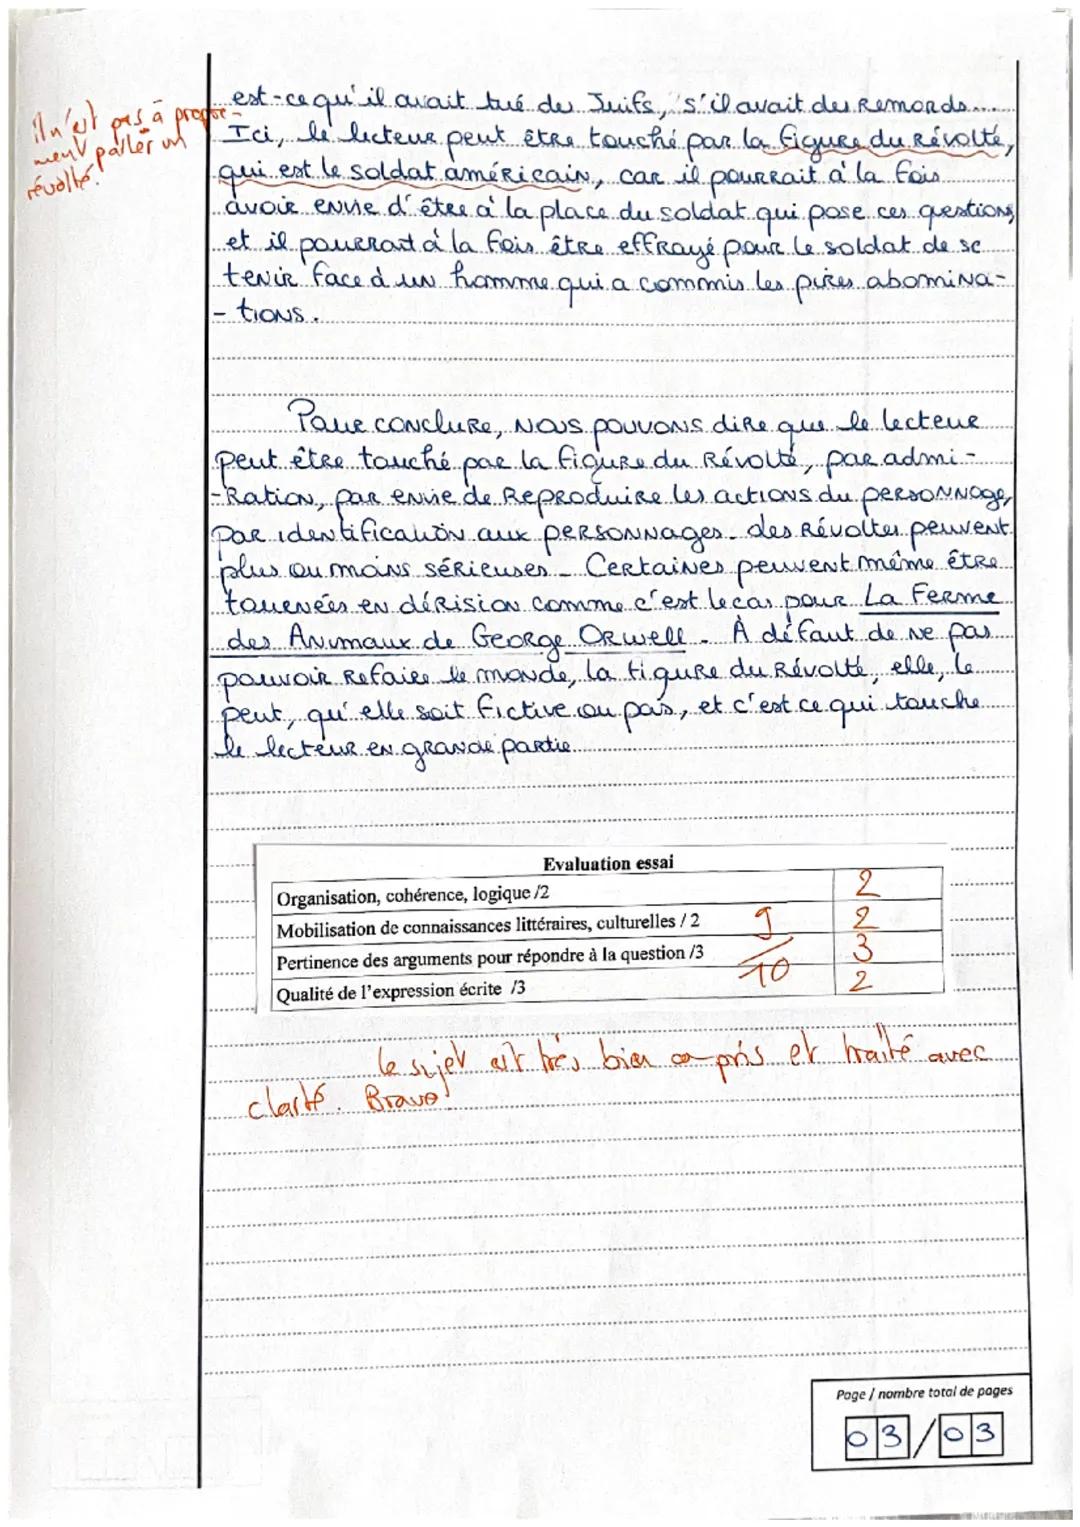 il n'est pas à propre-
ment parler un
révolté.
est-ce qu'il avait tué des Juifs, s'il avait des remords...
Ici, le lecteur peut être touché par la figure du révolté,
qui est le soldat américain, car il pourrait à la fois
avoir envie d'être à la place du soldat qui pose ces questions,
et il pourrait à la fois être effrayé pour le soldat de se
tenir face à un homme qui a commis les pires abomina-
-tions.
Pour conclure, nous pouvons dire que le lecteur
peut être touché par la figure du révolté, par admi-
-ration, par envie de reproduire les actions du personnage,
par identification aux personnages des révoltes peuvent
plus ou moins sérieuses. Certaines peuvent même être
tournées en dérision comme c'est le cas pour La Ferme
des Animaux de George Orwell. À défaut de ne pas
pouvoir refaire le monde, la figure du révolté, elle, le
peut, qu'elle soit fictive ou pas, et c'est ce qui touche
le lecteur en grande partie.
Evaluation essai
Organisation, cohérence, logique /2 2
Mobilisation de connaissances littéraires, culturelles / 2 2
Pertinence des arguments pour répondre à la question /3 3
Qualité de l'expression écrite /3 2
9/10
le sujet est très bien compris et traité avec
clarté. Bravo!
Page / nombre total de pages
03/03